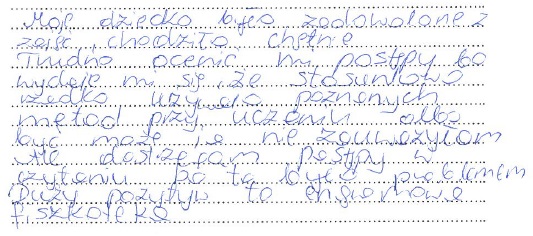 Moje dziecko było zadowolone z
zajęć, chodziło chętnie
Trudno ocenić mi postępy bo
wydaje mi się, że stosunkowo
rzadko używało poznanych
metod przy uczeniu albo
być może ja nie zauważyłam
ale dostrzegam postępy w
czytaniu bo to było problemem
Duży pozytyw to darmowe
fiszkoteka